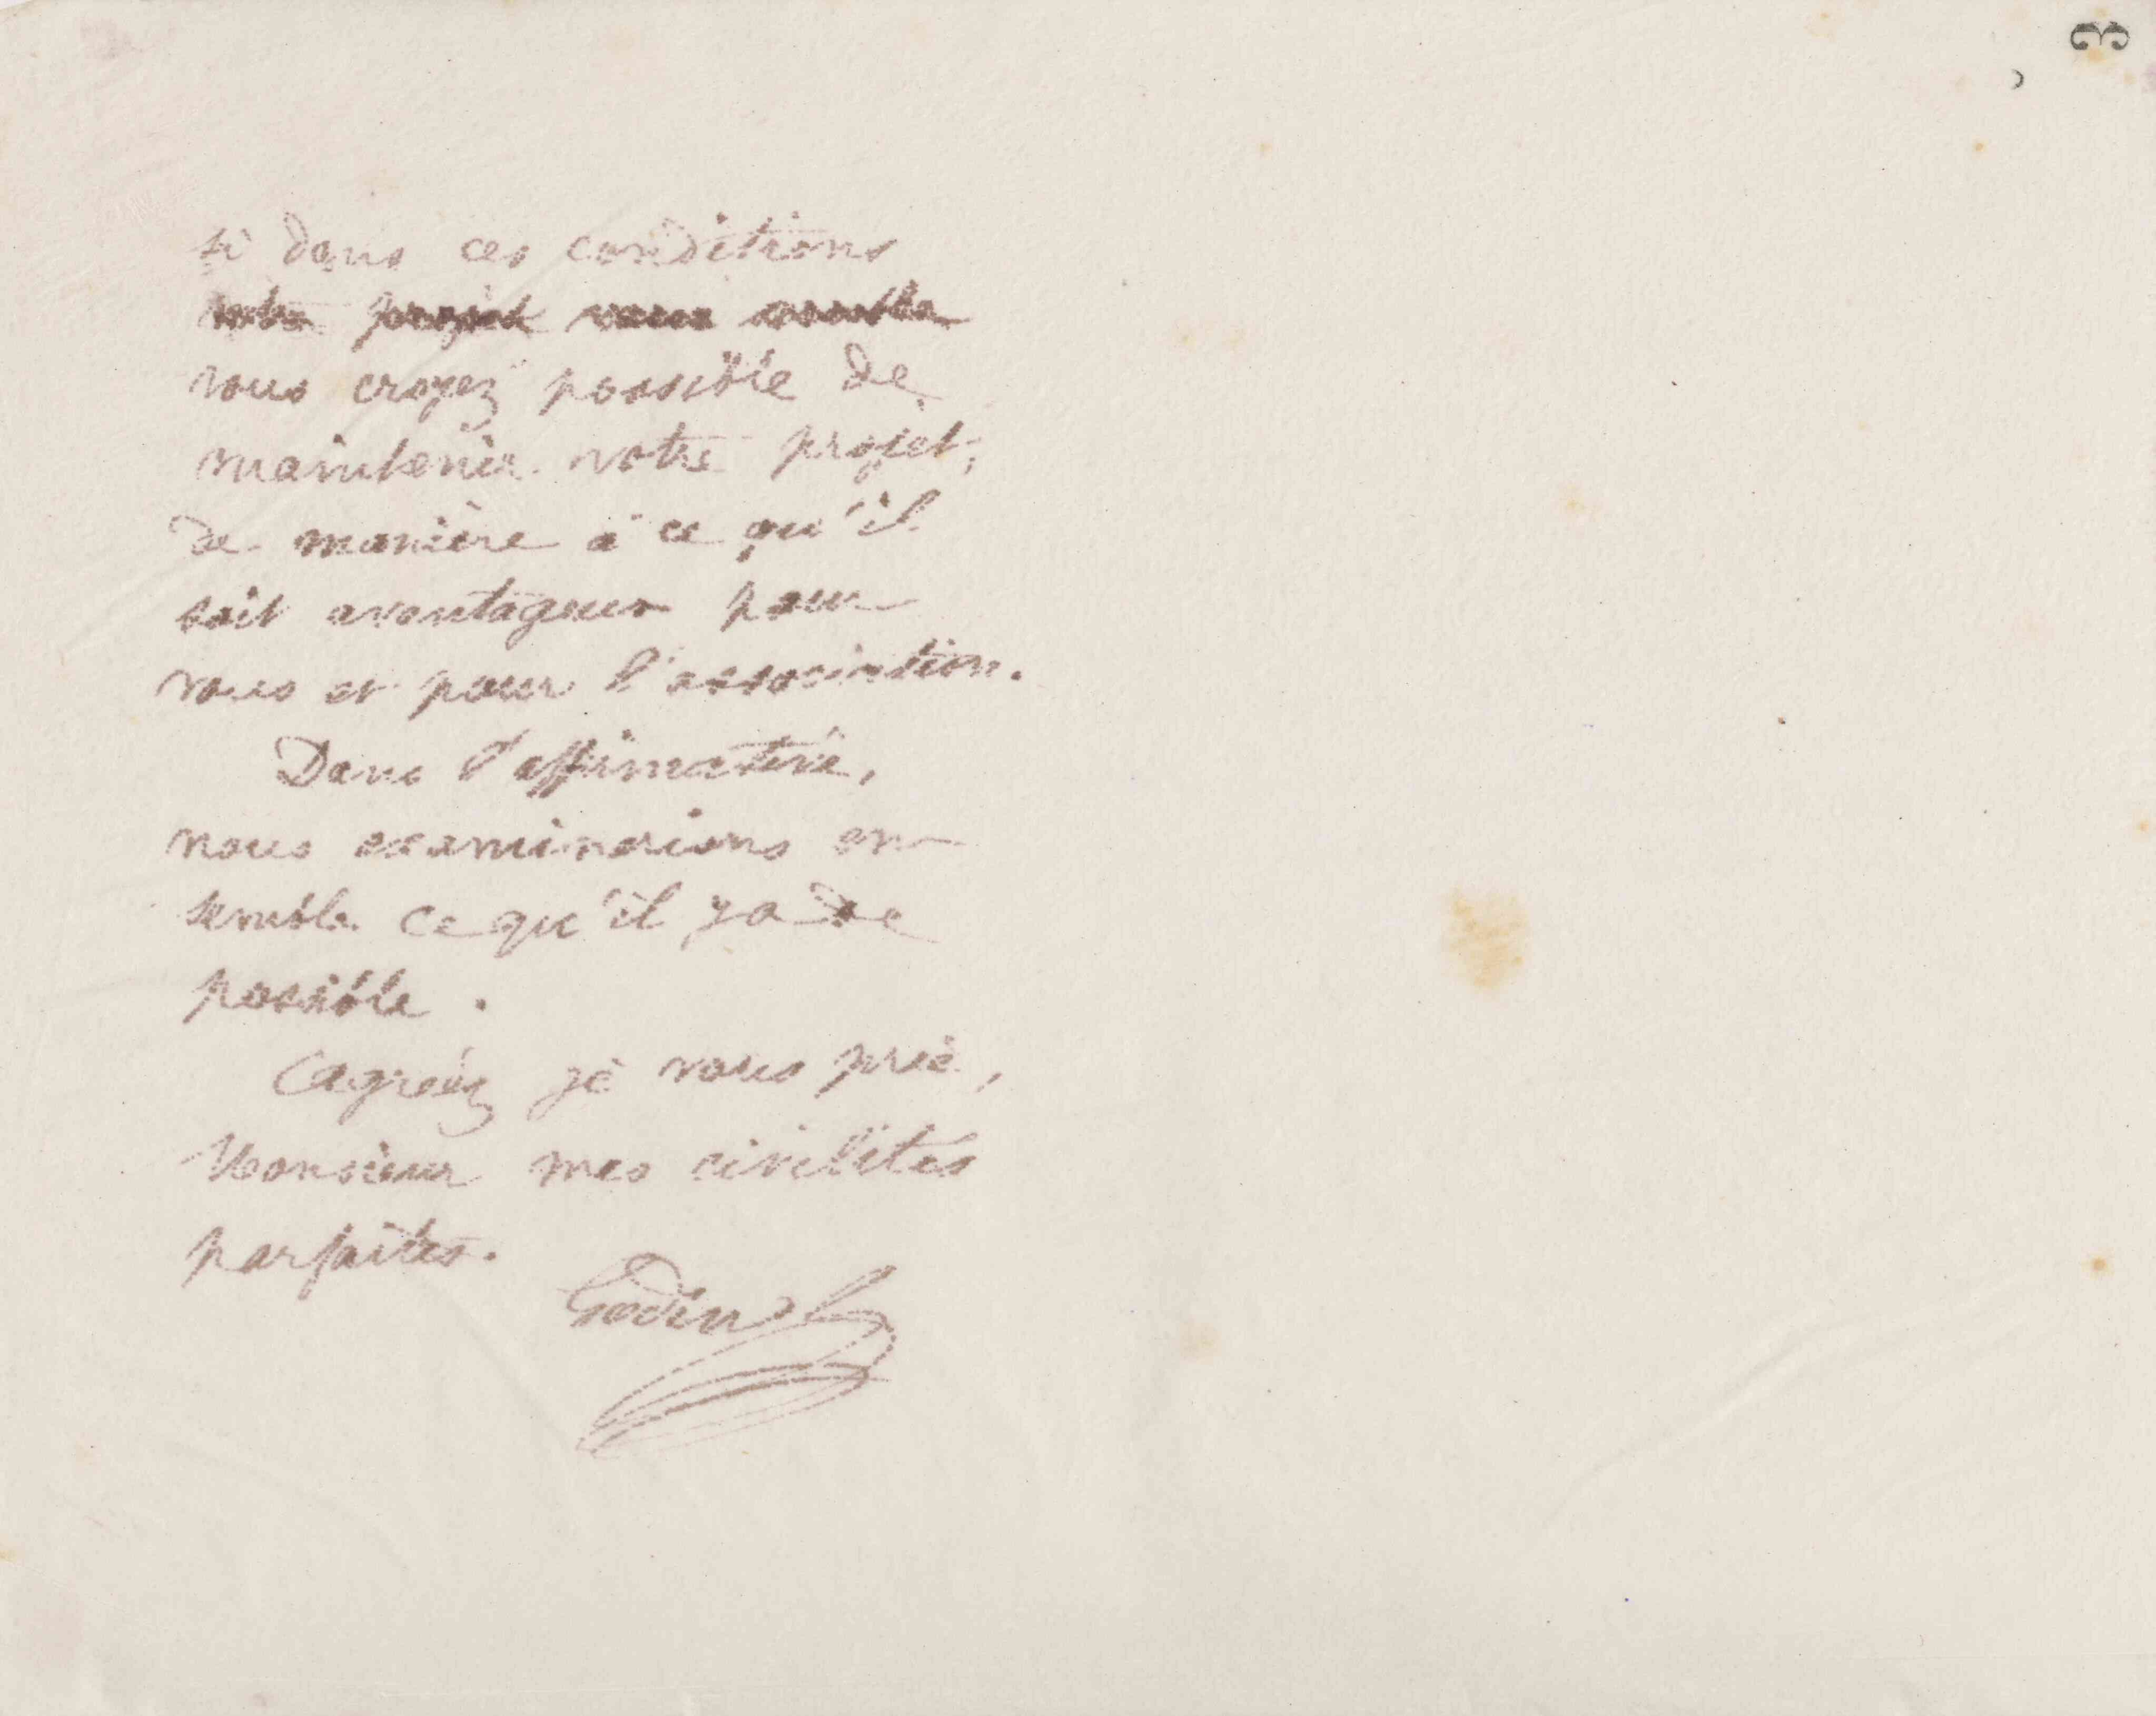 3
si dans ces conditions
votre projet vous semble
vous croyez possible de
maintenir votre projet,
de manière à ce qu'il
soit avantageux pour
vous et pour l'association.
Dans l'affirmative,
nous examinerions en
semble ce qu'il y a de
possible.
Agréez je vous prie,
Monsieur mes civilités
parfaites.
Godin